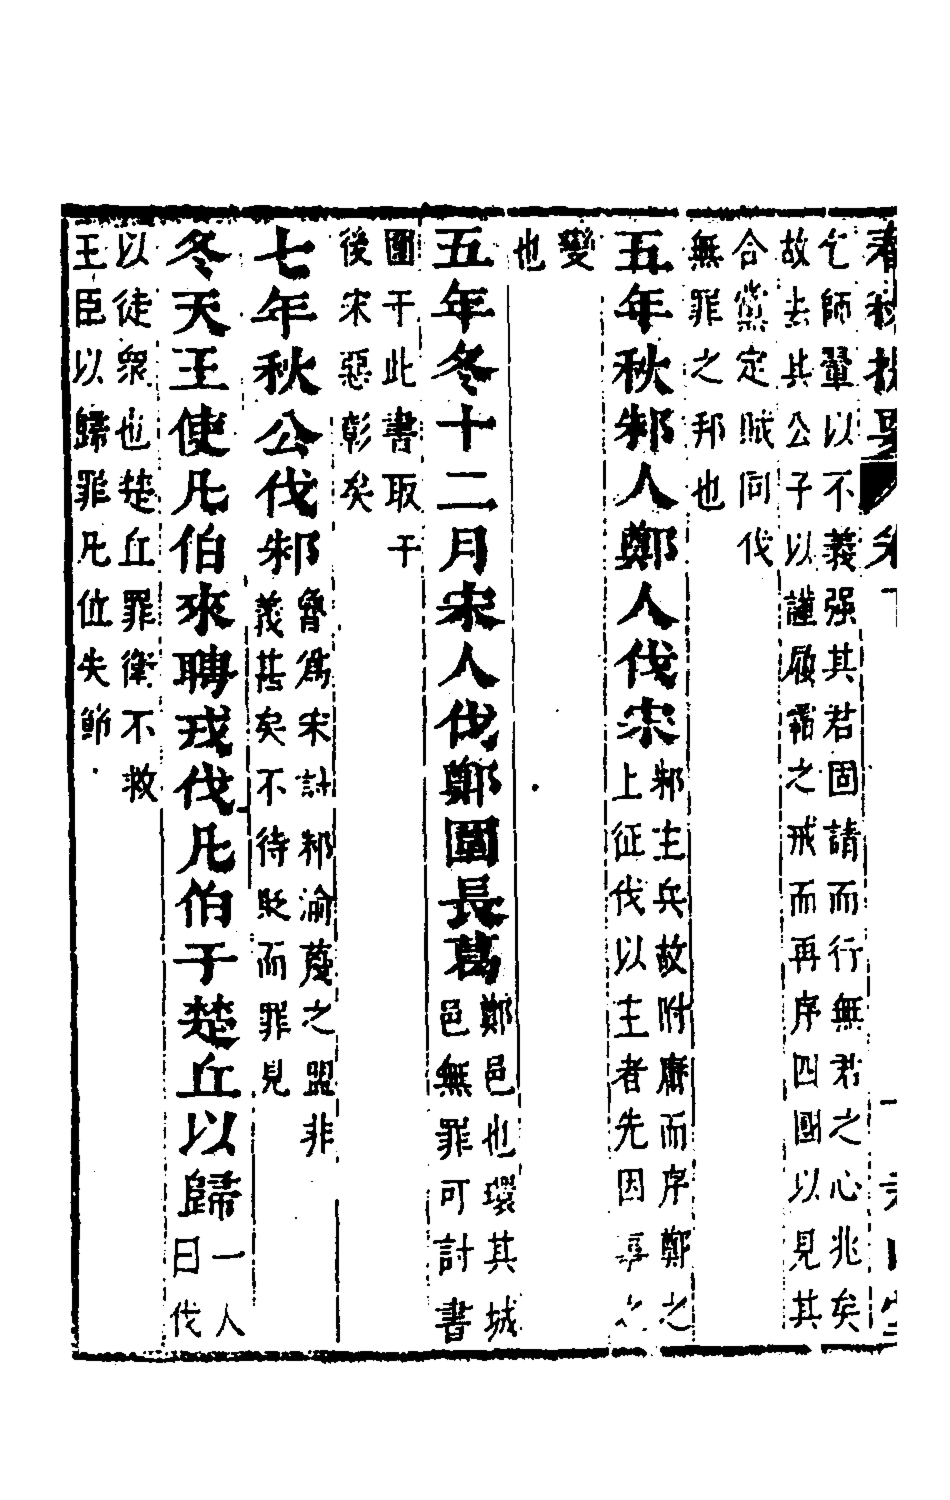 春秋
乞師翬以不義强其君固請而行無君之心兆矣
故去其公子以謹履霜之戒而再序四國以見其
合黨定賊同伐
無罪之邦也
五年秋邾人鄭人伐宋
邾主兵故附庸而序鄭之
上征伐以主者先因事之
變
也
五年冬十二月宋人伐鄭圍長葛
鄭邑也環其城
邑無罪可討書
圍于此書取于
後宋惡彰矣
七年秋公伐邾
魯爲宋討邾渝蔑之盟非
義甚矣不待貶而罪見
冬天王使凡伯來聘戎伐凡伯于楚丘以歸
一人
曰伐
以徒衆也楚丘罪衛不救
王臣以歸罪凡位失節